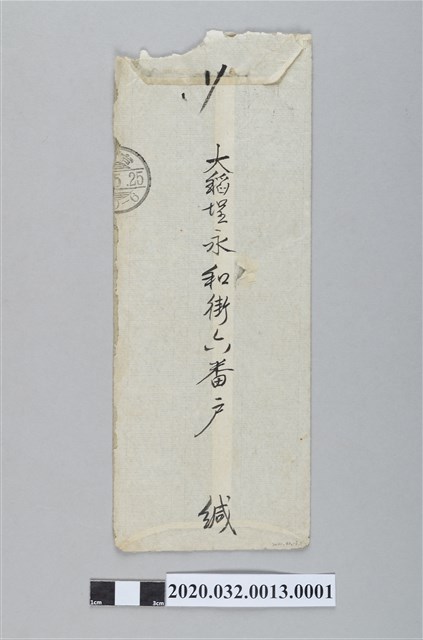 大稻埕永和街六番戶
緘
5.25
2020.032.0013.0001
1cm
3cm